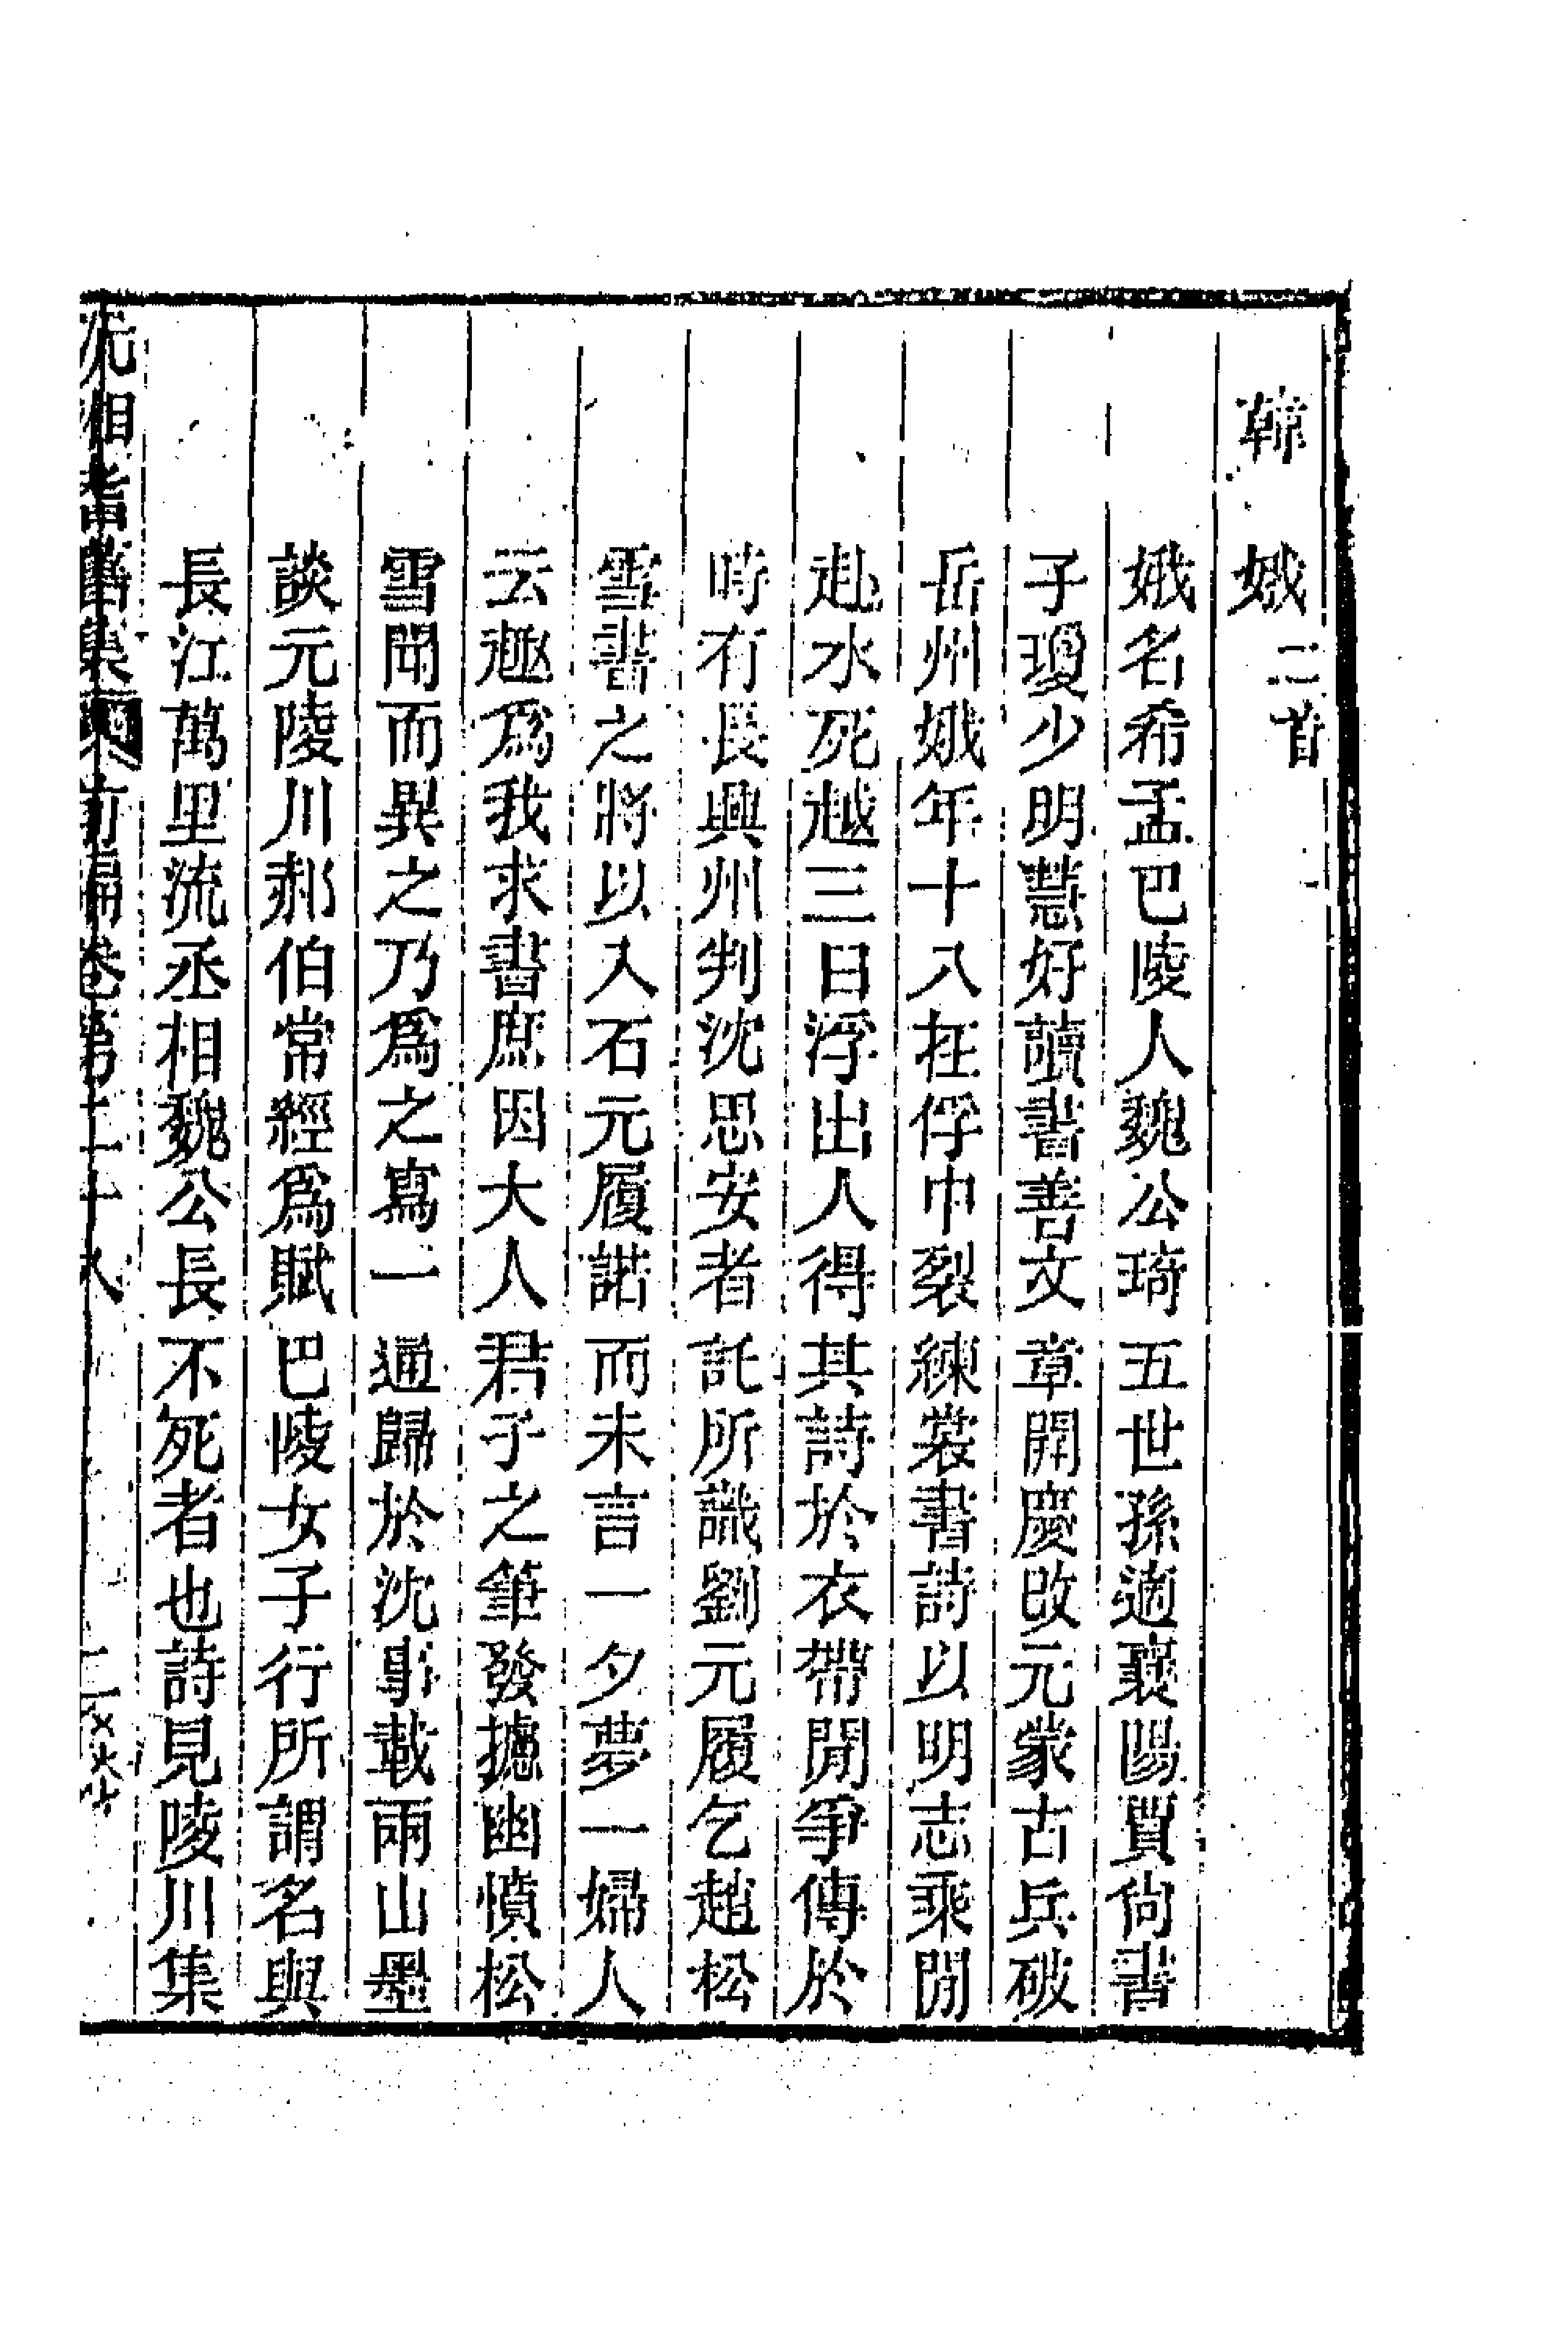 韓　娥二首
娥名希孟巴陵人魏公琦五世孫適襄陽賈尙書
子瓊少明慧好讀書善文章開慶改元蒙古兵破
岳州娥年十八在俘中裂練裳書詩以明志乘閒
赴水死越三日浮出人得其詩於衣帶閒爭傳於
時有長興州判沈思安者託所識劉元履乞趙松
雪書之將以入石元履諾而未言一夕夢一婦人
云趣爲我求書庶因大人君子之筆發攄幽憤松
雪聞而異之乃爲之寫一通歸於沈事載兩山墨
談元陵川郝伯常經爲賦巴陵女子行所謂名與
長江萬里流丞相魏公長不死者也詩見陵川集
沅湘耆舊集前編卷第二十八